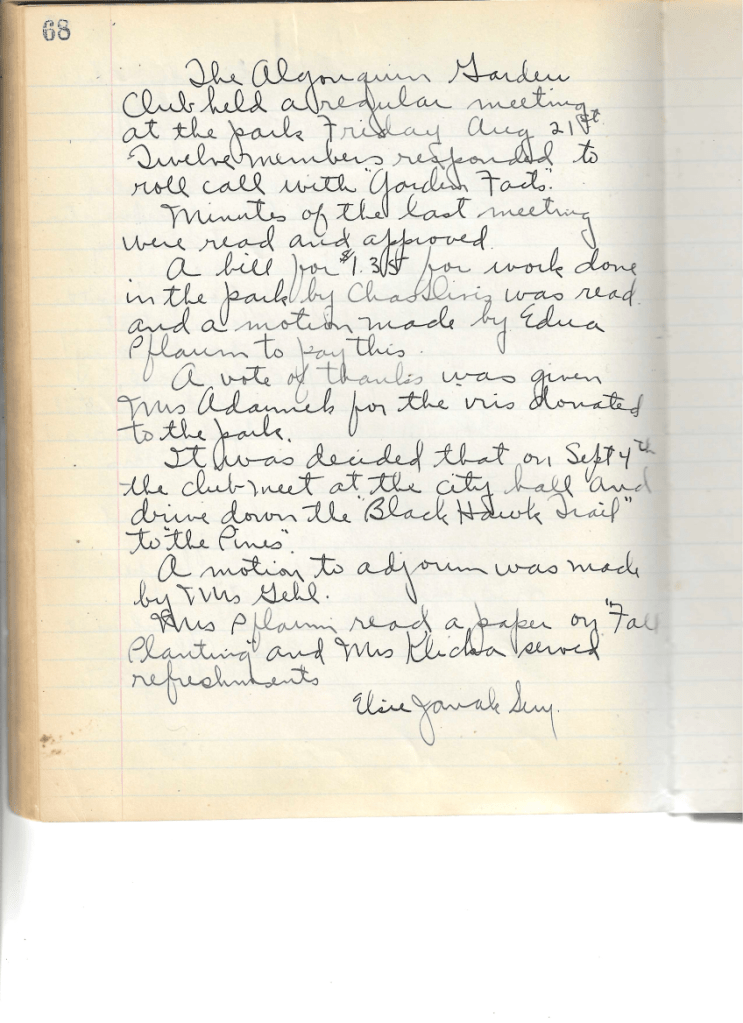 68
The Algonquin Garden
Club held a regular meeting
at the park Friday Aug 21st
Twelve members responded to
roll call with "Garden Facts".
Minutes of the last meeting
were read and approved.
A bill for $1.35 for work done
in the park by Chas was read
and a motion made by Edna
Pflaum to pay this.
A vote of thanks was given
Mrs Adamek for the iris donated
to the park.
It was decided that on Sept 4th
the club meet at the city hall and
drive down the "Black Hawk Trail"
to "the Pines".
A motion to adjourn was made
by Mrs Gehl.
Mrs Pflaum read a paper on "Fall
Planting" and Mrs served
refreshments
Elsie